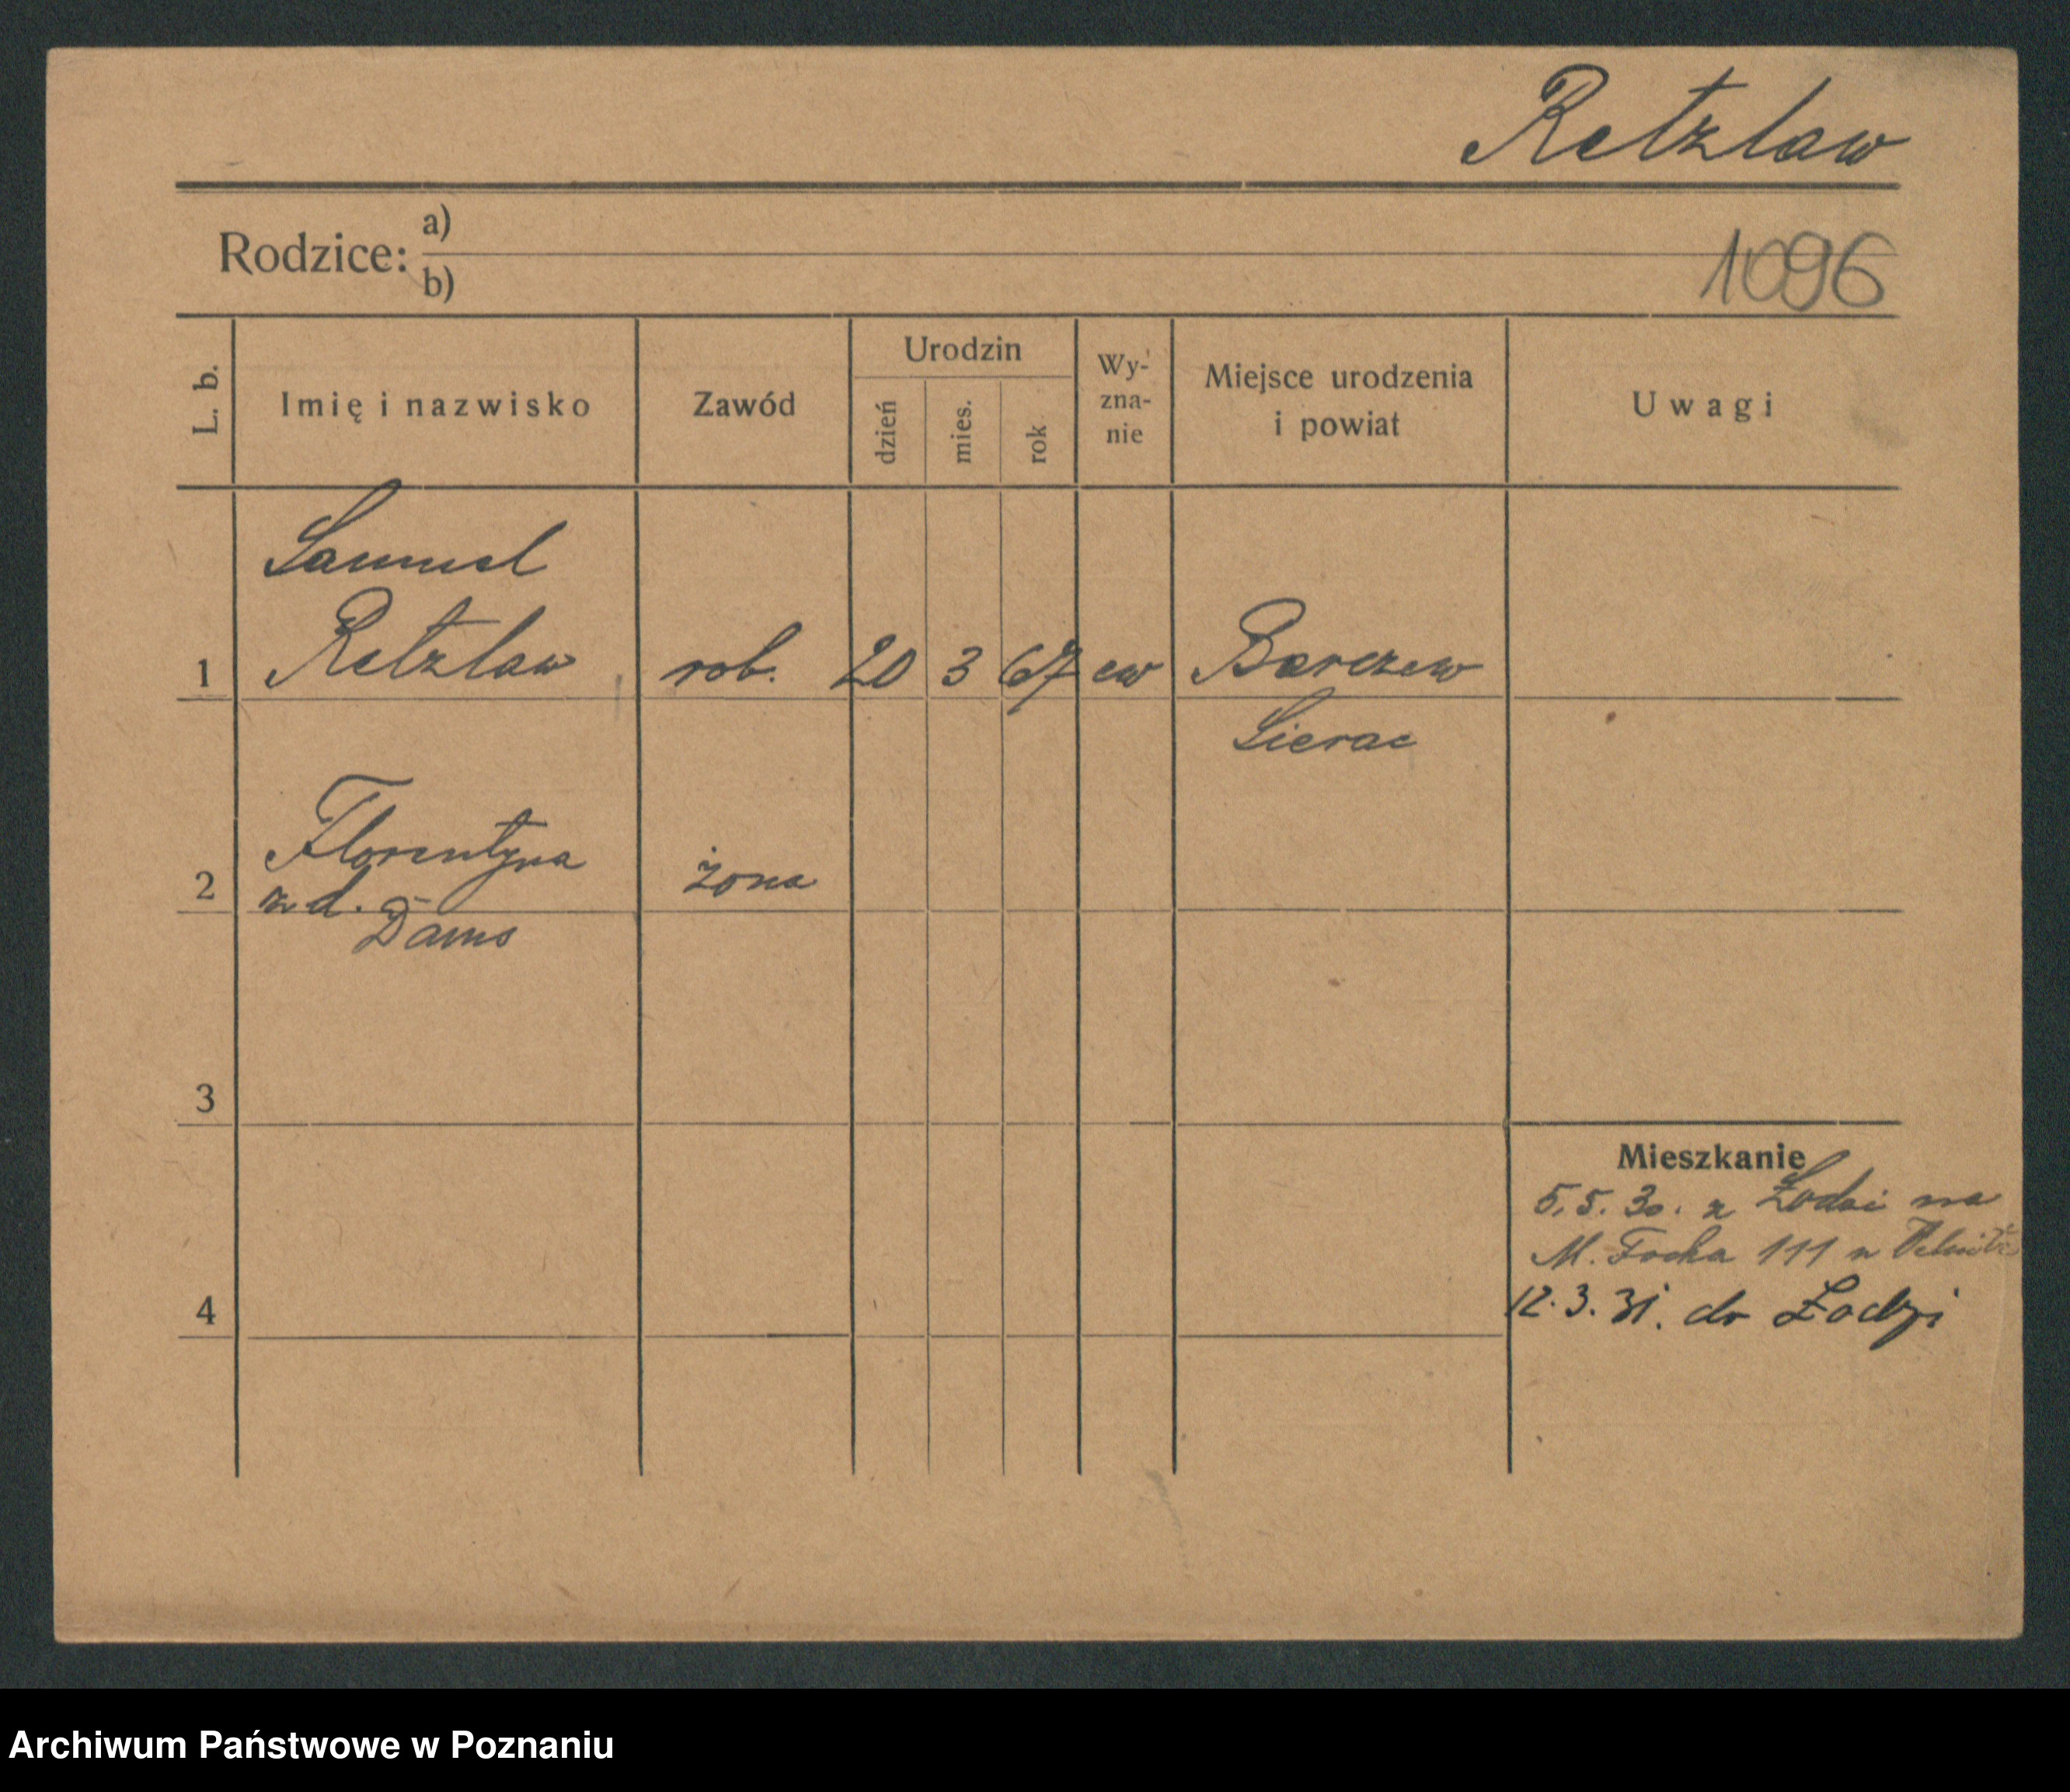 Retzlaw
Rodzice: a)
b)
1096
L. b.
Imię i nazwisko
Zawód
Urodzin
dzień
mies.
rok
Wy-
zna-
nie
Miejsce urodzenia
i powiat
Uwagi
Samuel
1 Retzlaw rob. 20 3 67 ew Barczew
Sierac
Florentyna
2 z d. żona
Dams
3
Mieszkanie
5.5.30. z Łodzi na
M. Focha 111 u
4 12.3.31. do Łodzi
Archiwum Państwowe w Poznaniu